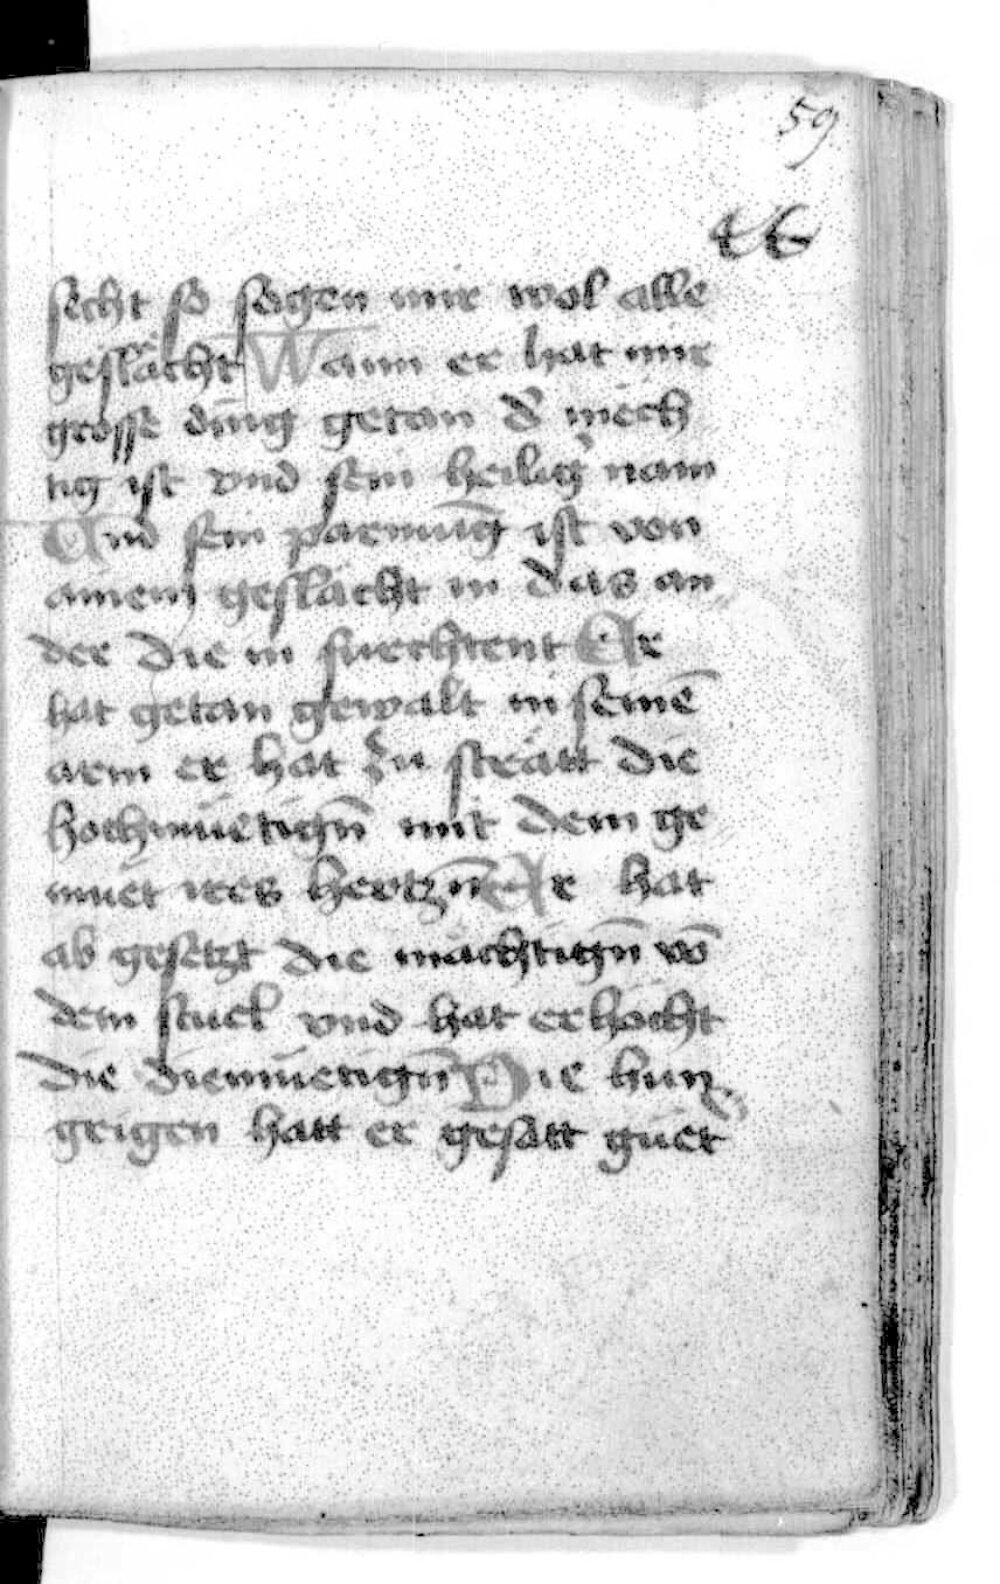 59
46
secht so sagen mir wol alle
geslächt Wann er hat mir
grosse ding getan d' mech
tig ist vnd sein heilig' nam
Vnd sein parmūg ist von
ainem geslächt in das an
der die in fuerchtent Er
hat getan gewalt in seinē
arm er hat zu strätt die
hochmüetign̄ mit dem ge
müet ires hertzn̄ Er hat
ab gesetzt die mächtign̄ vō
dem stuel vnd hat erhöcht
die diemüetign̄ Die hun
grigen hatt er gesätt güet